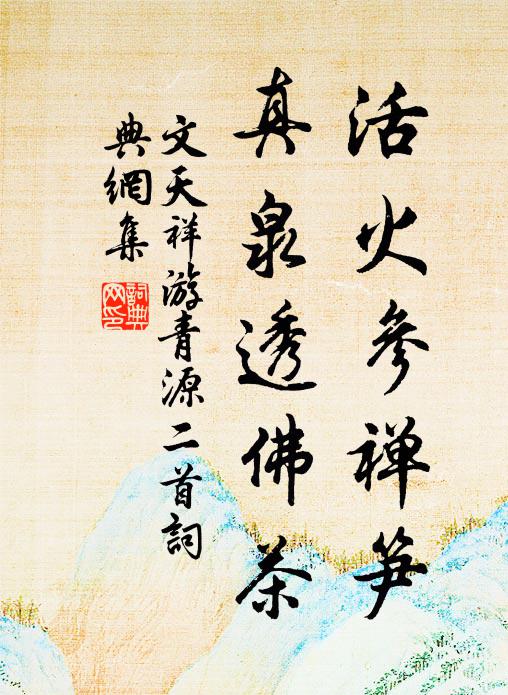 活火參禅笋
真泉透佛茶
文天祥游青源二首詞
典網集
詞典
网印